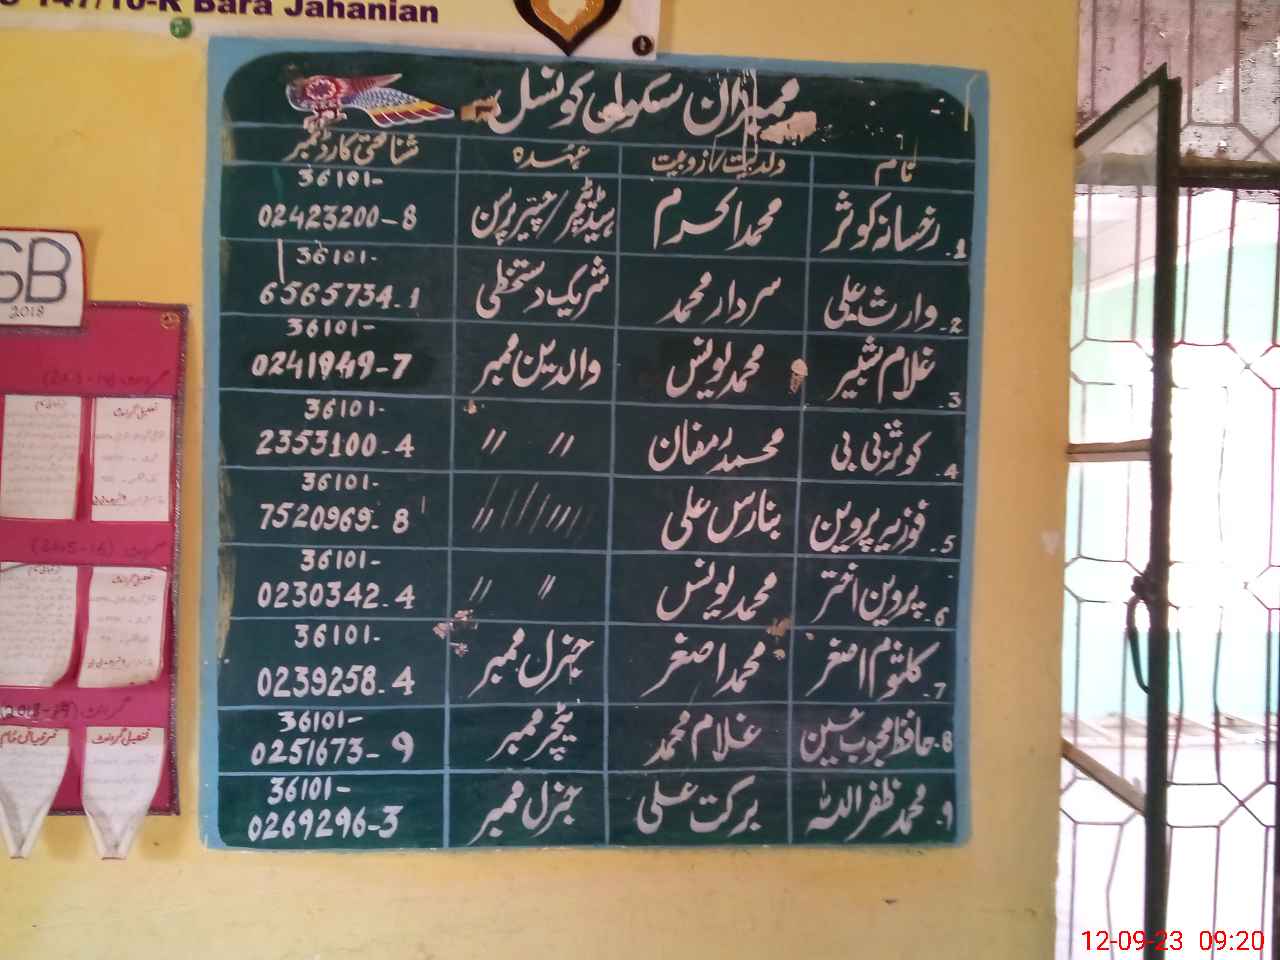 147/10-R Bara Jahanian
ممبران سکول کونسل
نام ولدیت/زوجیت عہدہ شناختی کارڈ نمبر
1. رخسانہ کوثر محمد اکرم ہیڈ ٹیچر/چیئرپرسن 36101-02423200-8
2. وارث علی سردار محمد شریک دستخطی 36101-6565734-1
3. غلام شبیر محمد یونس والدین ممبر 36101-0241949-7
4. کوثر بی بی محمد رمضان // // 36101-2353100-4
5. فوزیہ پروین بنارس علی // // 36101-7520969-8
6. پروین اختر محمد یونس // // 36101-0230342-4
7. کلثوم اصغر محمد اصغر جنرل ممبر 36101-0239258-4
8. حافظ محبوب حسین غلام محمد ٹیچر ممبر 36101-0251673-9
9. محمد ظفر اللہ برکت علی جنرل ممبر 36101-0269296-3
SB
2018
تفصیل گرانٹ
تفصیل گرانٹ
گرانٹ
تفصیل گرانٹ
12-09-23 09:20